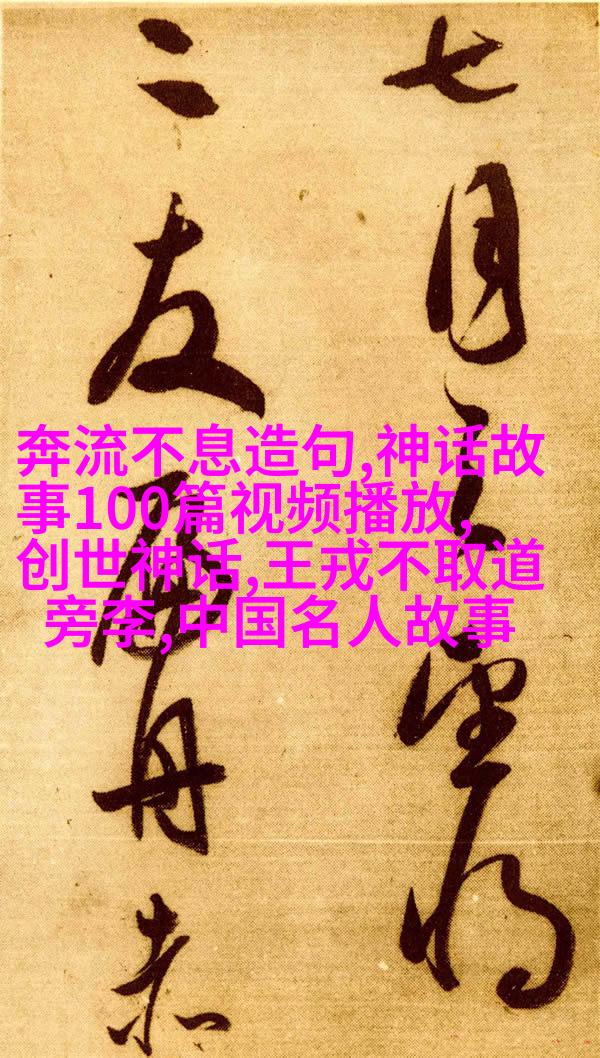 七月之望将
二友舟赤
奔流不息造句,神话故
事100篇视频播放,
创世神话,王戎不取道
旁李,中国名人故事